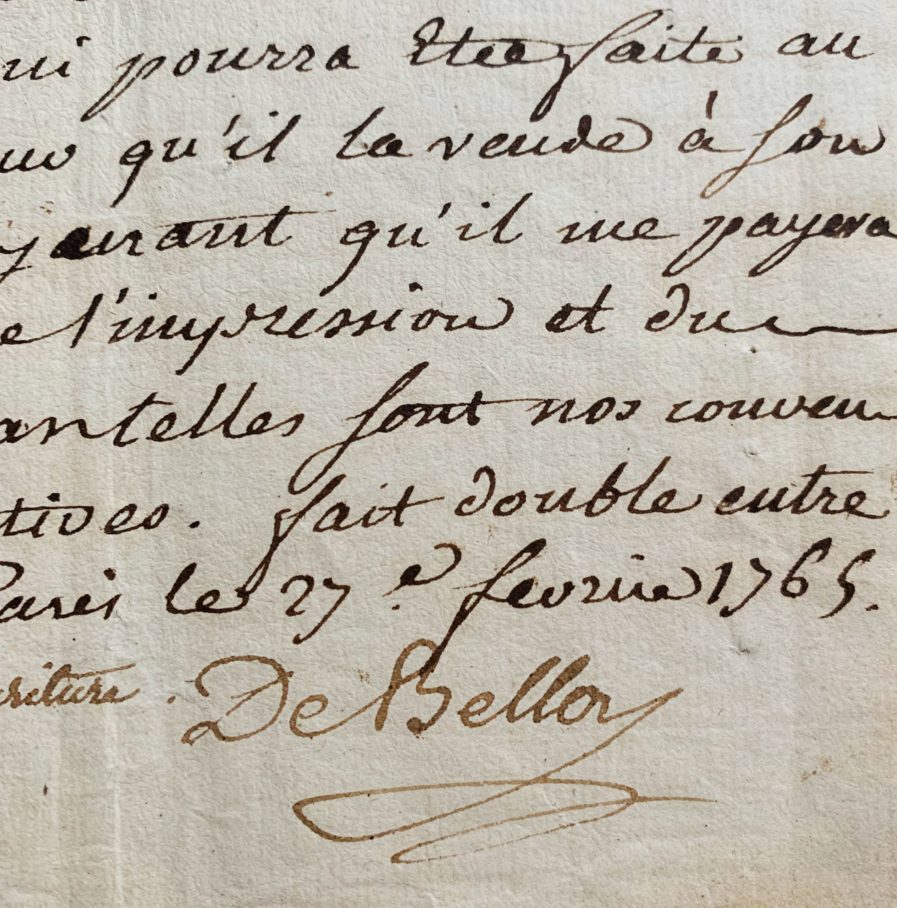 ui pourra Etre faite au
qu'il la vende à son
qu'il me payera
e l'impression et du
telles sont nos conven
tives. fait double entre
Paris le 27.e fevrier 1765.
criture. De Belloy